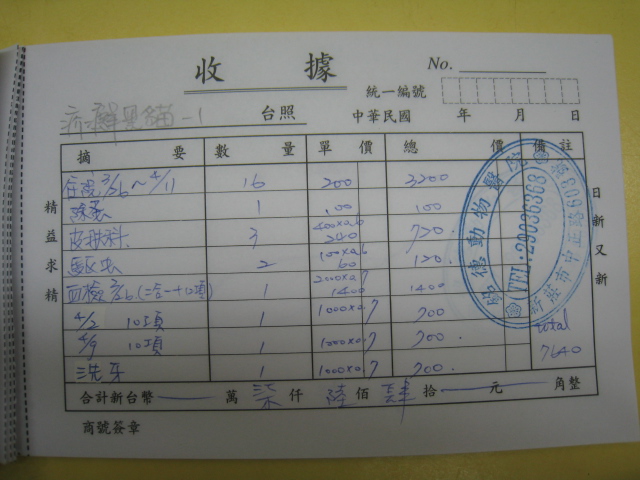 收據
No.
統一編號
一1 台照 中華民國 年 月 日
摘要 數量 單價 總價 備註
住院 3/26~4/11 16 200 3200
1 100 100
皮膚科 3 400x0.6 240 720.
驅虫 2 100x0.6 60 120.
血檢 3/26 (二合一+10項) 1 2000x0.7 1400 1400
4/2 10項 1 1000x0.7 700
4/9 10項 1000x0.7 700.
洗牙 1 1000x0.7 700.
total
7640
合計新台幣 萬 柒 仟 陸 佰 肆 拾 元 角整
商號簽章
精益求精
日新又新
德動物醫院
TEL:29036368
新莊市中正路809號